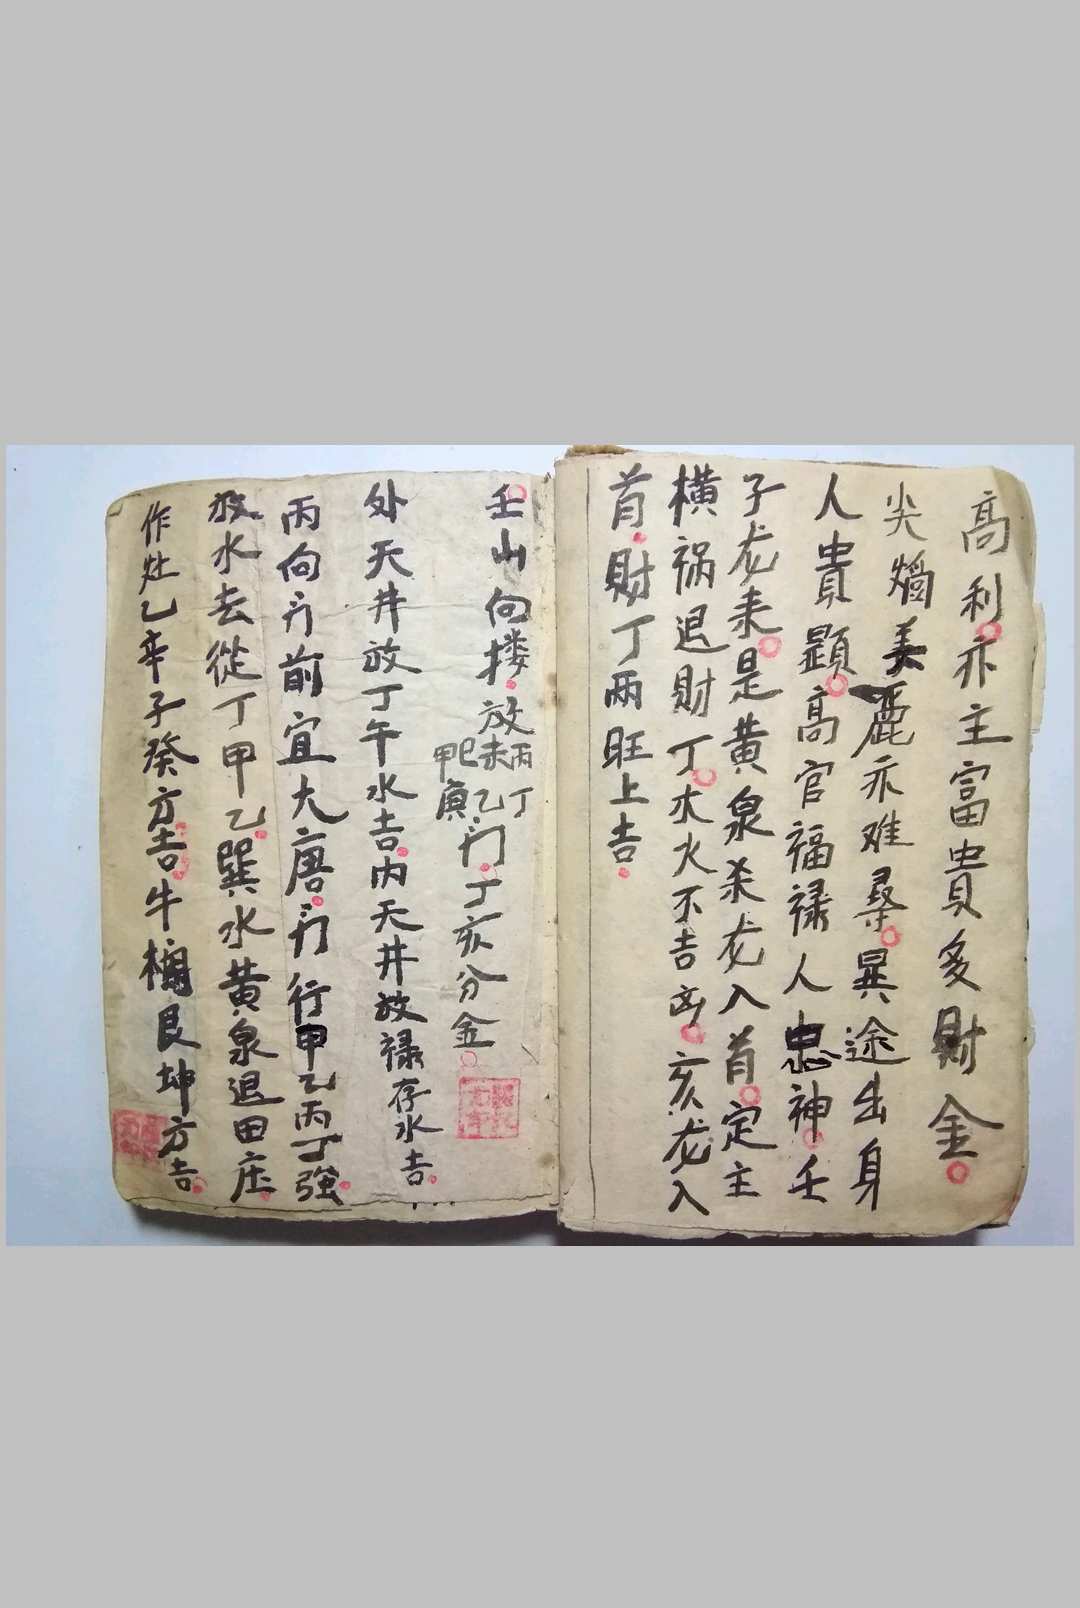 高利亦主富貴多財金
尖 美麗亦难尋異途出身
人貴顕高官福禄人忠神壬
子龙来是黄泉杀龙入首定主
横祸退財丁水火不吉凶亥龙入
首財丁两旺上吉
壬山向 放丙丁未乙巳甲庚门丁亥分金
处天井放丁午水吉内天井放禄存水吉
丙向门前宜大唐门行甲乙丙丁強
放水去從丁甲乙巽水黄泉退田庄
作灶乙辛子癸方吉牛 艮坤方吉